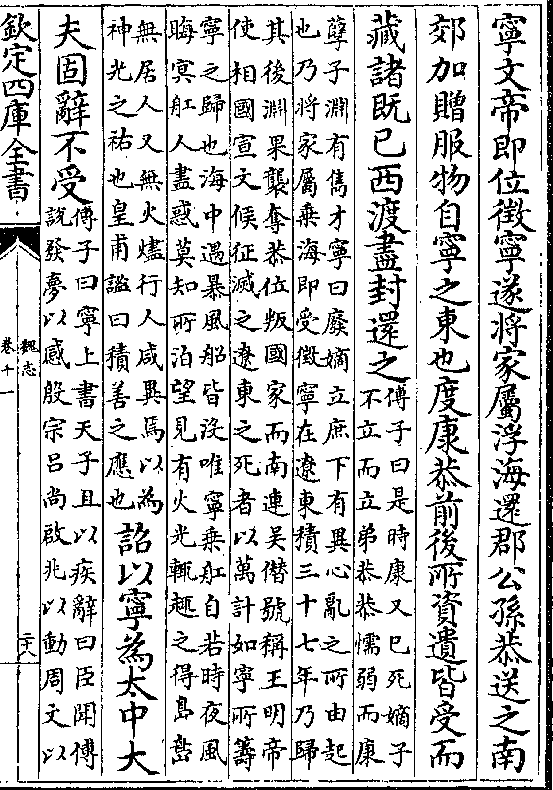 寧文帝即位徵寧遂將家屬浮海還郡公孫恭送之南
郊加贈服物自寧之東也度康恭前後所資遺皆受而
藏諸既已西渡盡封還之
傅子曰是時康又已死嫡子
不立而立弟恭恭懦弱而康
孽子淵有雋才寧曰廢嫡立庶下有異心亂之所由起
也乃將家屬乗海即受徵寧在遼東積三十七年乃歸
其後淵果襲奪恭位叛國家而南連吳僭號稱王明帝
使相國宣文侯征滅之遼東之死者以萬計如寧所籌
寧之歸也海中遇暴風船皆沒唯寧乗舡自若時夜風
晦冥舡人盡惑莫知所泊望見有火光輒趣之得島嶼
無居人又無火燼行人咸異焉以為
神光之祐也皇甫謐曰積善之應也
詔以寧為太中大
夫固辭不受
傅子曰寧上書天子且以疾辭曰臣聞傅
說發夢以感殷宗呂尚啟兆以動周文以
欽定四庫全書
魏志
卷十一
二十八